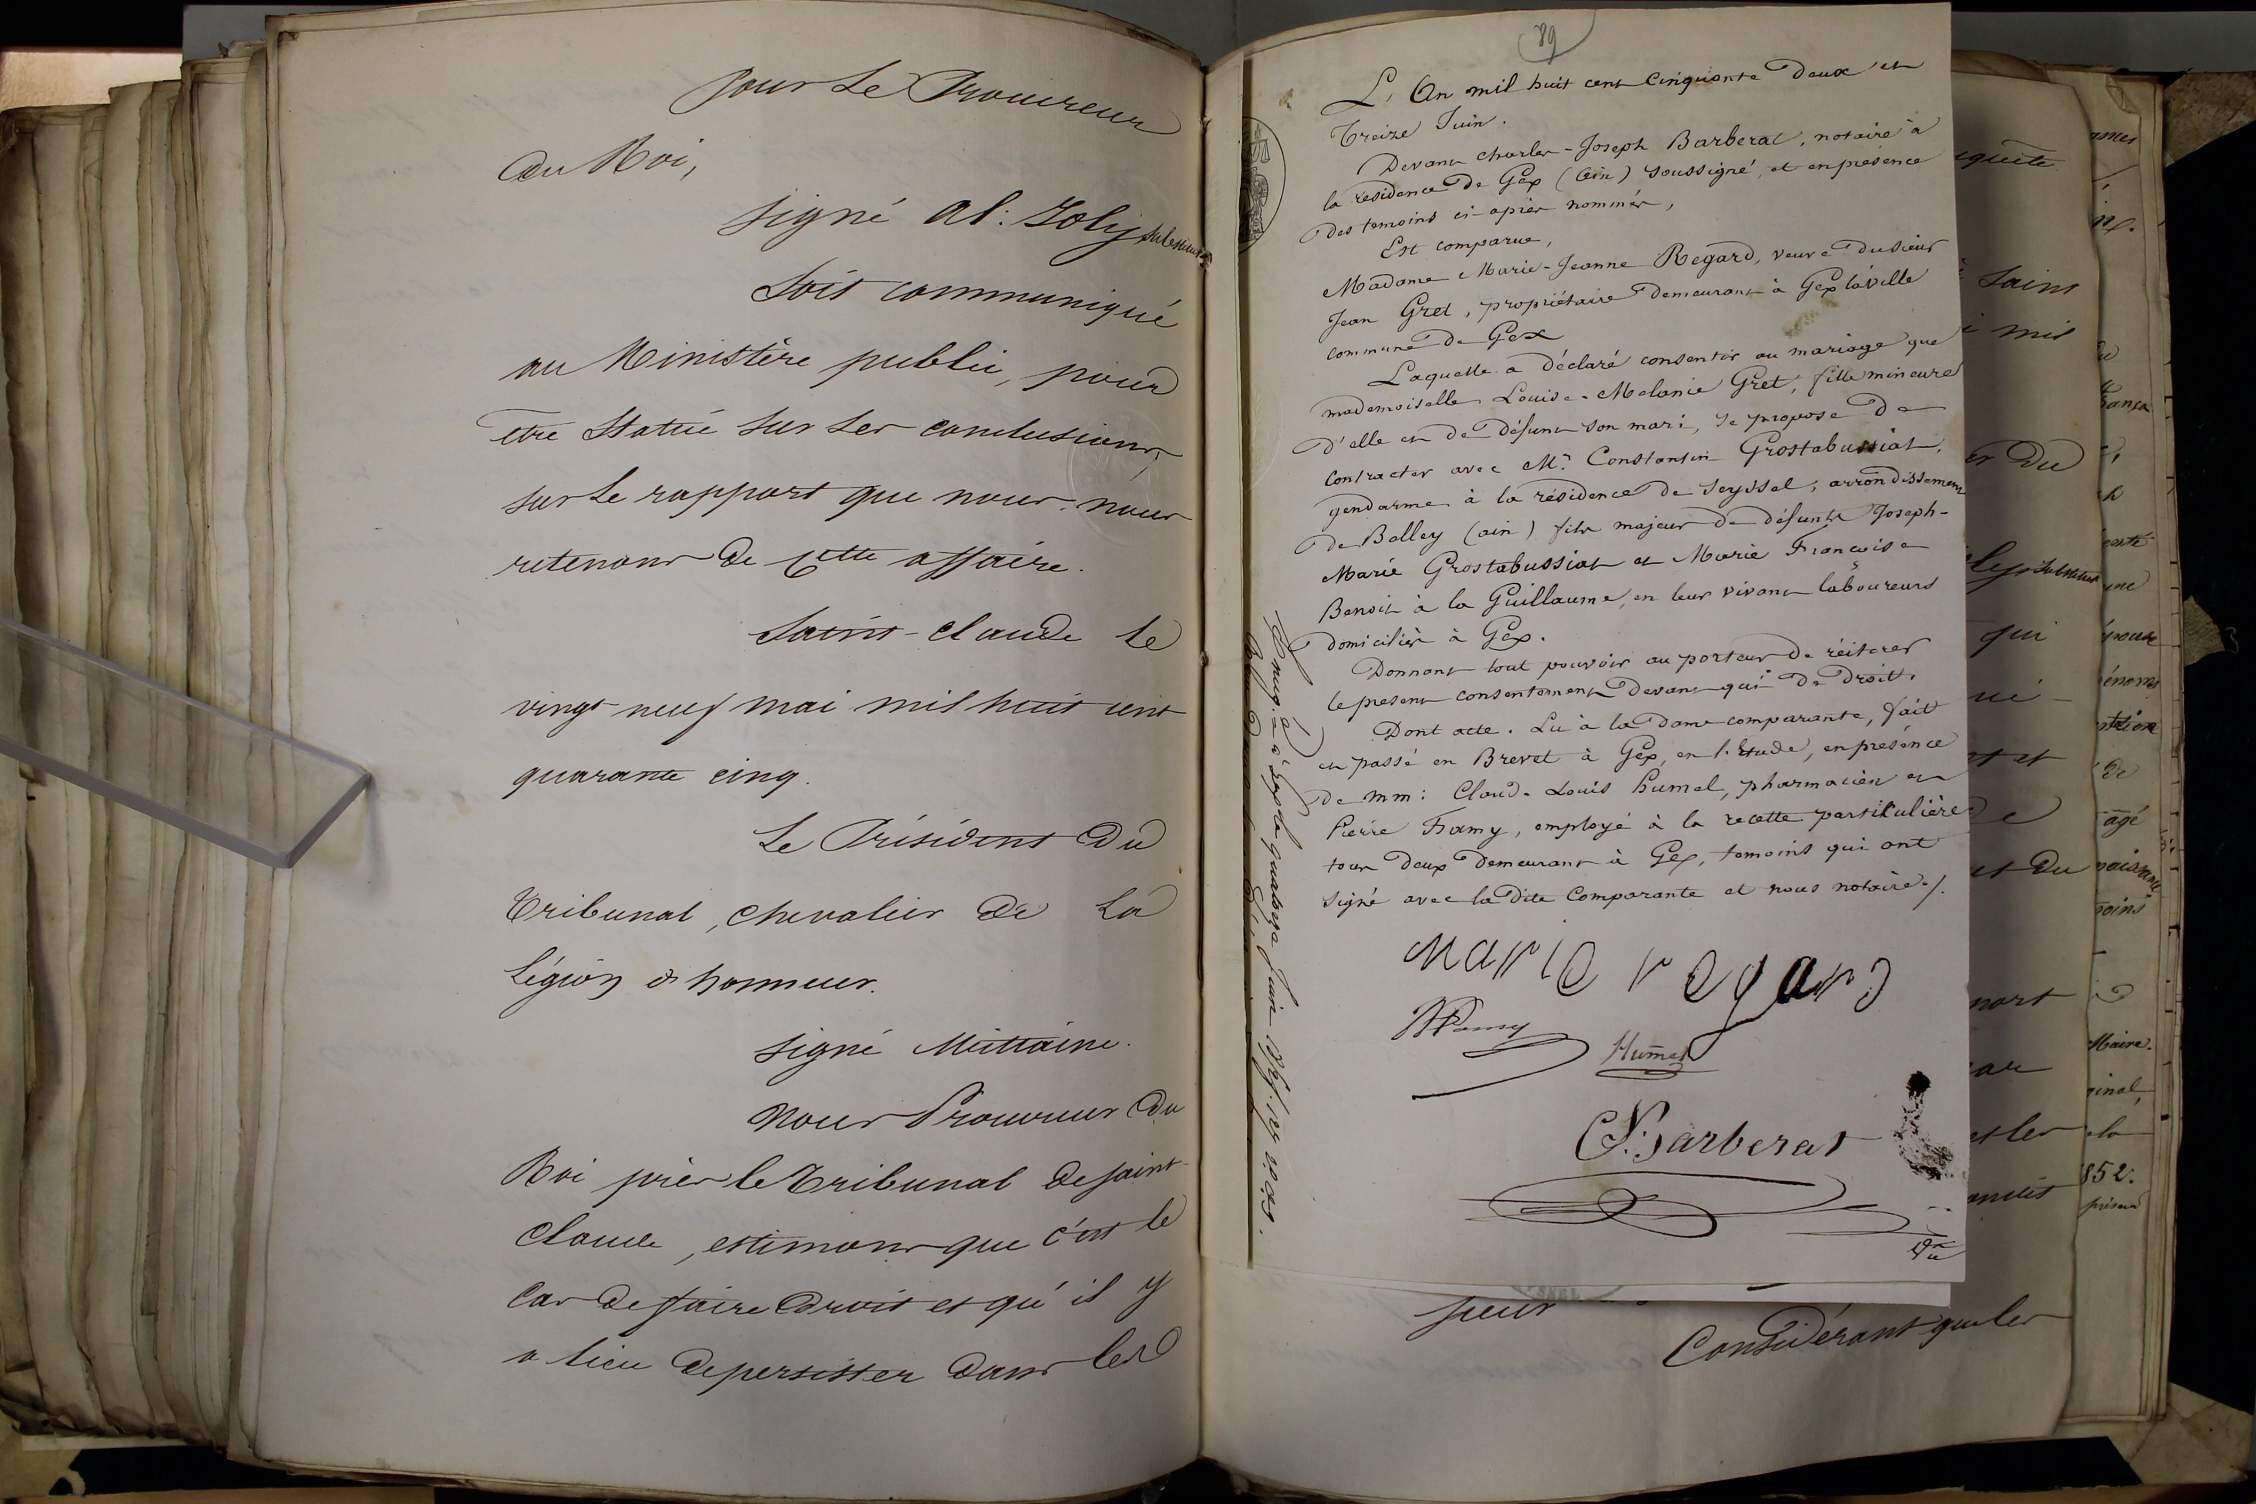 Pour le Procureur
du Roi,
signé Al: Joly substitut
Soit communiqué
au Ministère public, pour
être statué sur ses conclusions,
sur le rapport que nous nous
retenons de cette affaire.
Saint-Claude le
vingt neuf mai mil huit cent
quarante cinq.
Le Président du
Tribunal, chevalier de la
Légion d'honneur.
signé
Nous Procureur du
Roi près le Tribunal de Saint-
Claude, estimons que c'est le
cas de faire droit et qu'il y
a lieu de persister dans les
89
L'An mil huit cent cinquante Deux et
Treize Juin.
Devant Charles-Joseph Barberat, notaire à
la résidence de Gex (Ain) soussigné, et en présence
des temoins ci-après nommés,
Est comparue,
Madame Marie-Jeanne Regard, veuve du sieur
Jean Gret, propriétaire demeurant à Gex la ville
commune de Gex
Laquelle a déclaré consentir au mariage que
mademoiselle Louise-Melanie Gret, fille mineure
d'elle et de défunt son mari, se propose de
contracter avec Mr. Constantin Grostabussiat,
gendarme à la résidence de Seyssel, arrondissement
de Belley (ain) fils majeur de défunts Joseph-
Marie Grostabussiat et Marie Françoise
Benoit à la Guillaume, en leur vivant laboureurs
domiciliés à Gex.
Donnant tout pouvoir au porteur de réiterer
le present consentement devant qui de Droit.
Dont acte. Lu à la dame comparante, fait
et passé en Brevet à Gex, en l'Etude, en présence
de mm: Claude Louis Humel, pharmacien et
Pierre Framy, employé à la recette particulière
tous deux demeurant à Gex, temoins qui ont
signé avec la dite Comparante et nous notaire./.
Marie regard
Humel
Barberat
sieur
Considérant que les
quête
Saint
mil
er du
substitut
qui
et du
mort
et les
Maire.
852.